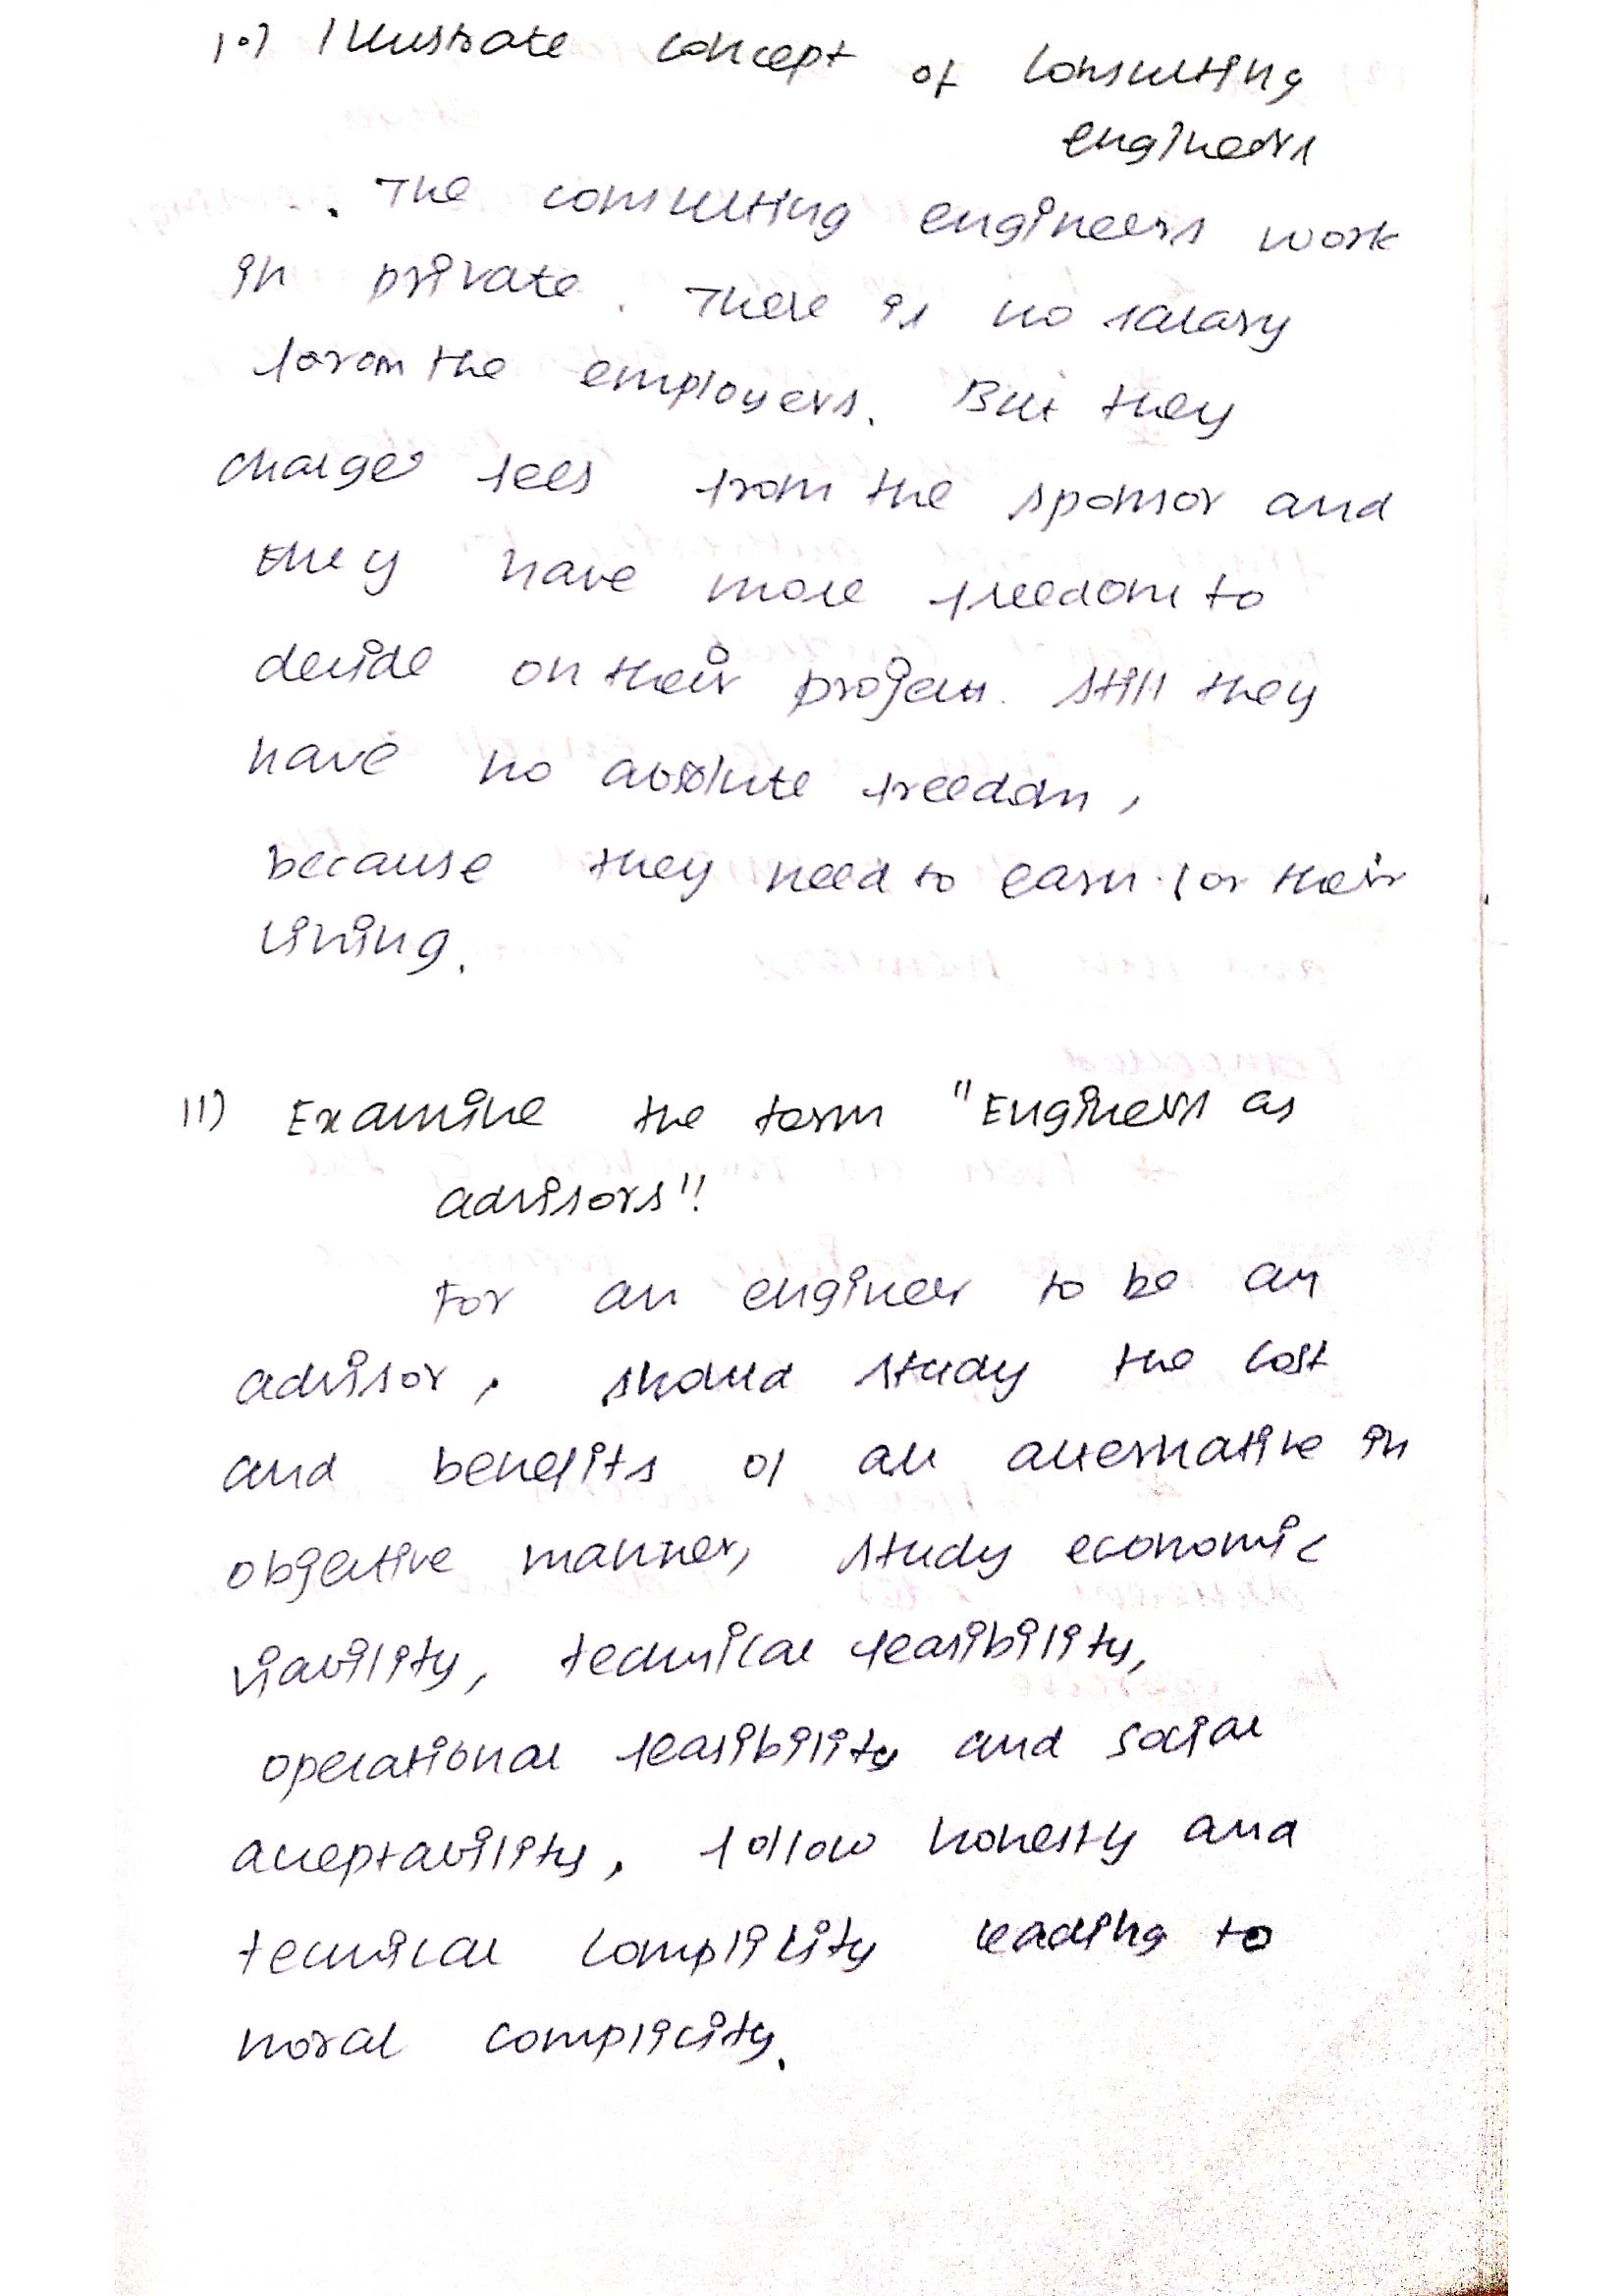 10) Illustrate concept of consulting
engineers
The consulting engineers work
in private. There is no salary
from the employers. But they
charge fees from the sponsor and
they have more freedom to
decide on their projects. Still they
have no absolute freedom,
because they need to earn for their
living.
11) Examine the term "Engineers as
advisors".
For an engineer to be an
advisor, should study the cost
and benefits of all alternative in
objective manner, study economic
viability, technical feasibility,
operational feasibility and social
acceptability, follow honesty and
technical complicity leading to
moral complicity.